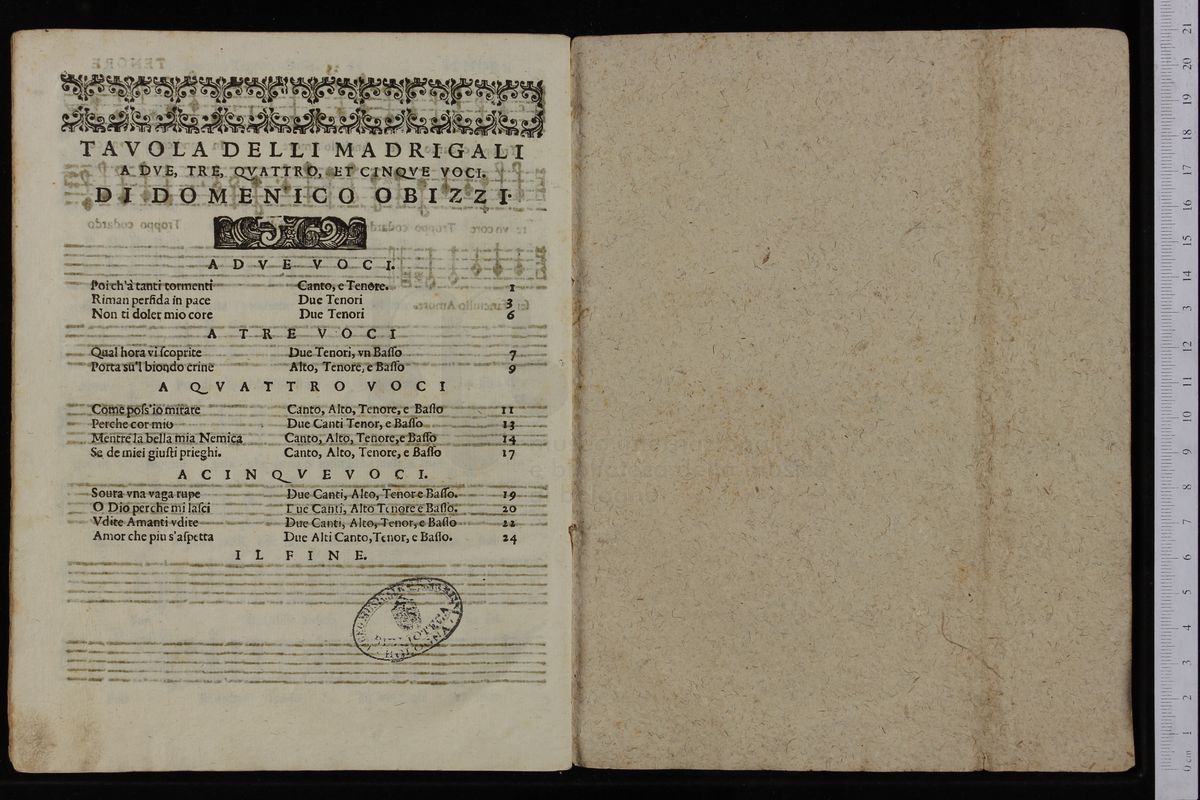 TAVOLA DELLI MADRIGALI
A DVE, TRE, QVATTRO, ET CINQVE VOCI.
DI DOMENICO OBIZZI.
A DVE VOCI.
Poi ch'à tanti tormenti Canto, e Tenore. 1
Riman perfida in pace Due Tenori 3
Non ti doler mio core Due Tenori 6
A TRE VOCI
Qual hora vi ſcoprite Due Tenori, vn Baſſo 7
Porta su'l biondo crine Alto, Tenore, e Baſſo 9
A QVATTRO VOCI
Come poſs'io mirare Canto, Alto, Tenore, e Baſſo 11
Perche cor mio Due Canti Tenor, e Baſſo 13
Mentre la bella mia Nemica Canto, Alto, Tenore, e Baſſo 14
Se de miei giuſti prieghi. Canto, Alto, Tenore, e Baſſo 17
A CINQVE VOCI.
Soura vna vaga rupe Due Canti, Alto, Tenore e Baſſo. 19
O Dio perche mi laſci Due Canti, Alto Tenore e Baſſo. 20
Vdite Amanti vdite Due Canti, Alto, Tenor, e Baſſo 22
Amor che piu s'aſpetta Due Alti Canto, Tenor, e Baſſo. 24
IL FINE.
BIBLIOTECA
BOLOGNA